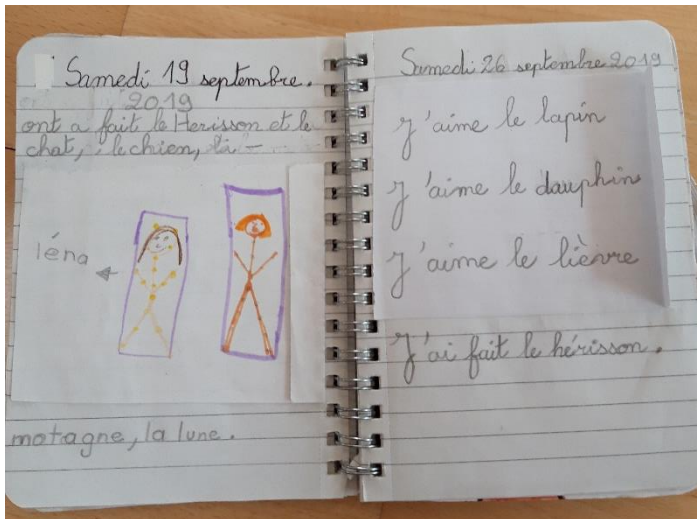 Samedi 19 septembre.
2019
ont a fait le Herisson et le
chat, le chien,
léna
motagne, la lune.
Samedi 26 septembre 2019
J'aime le lapin
J'aime le dauphin
J'aime le lièvre
J'ai fait le hérisson.